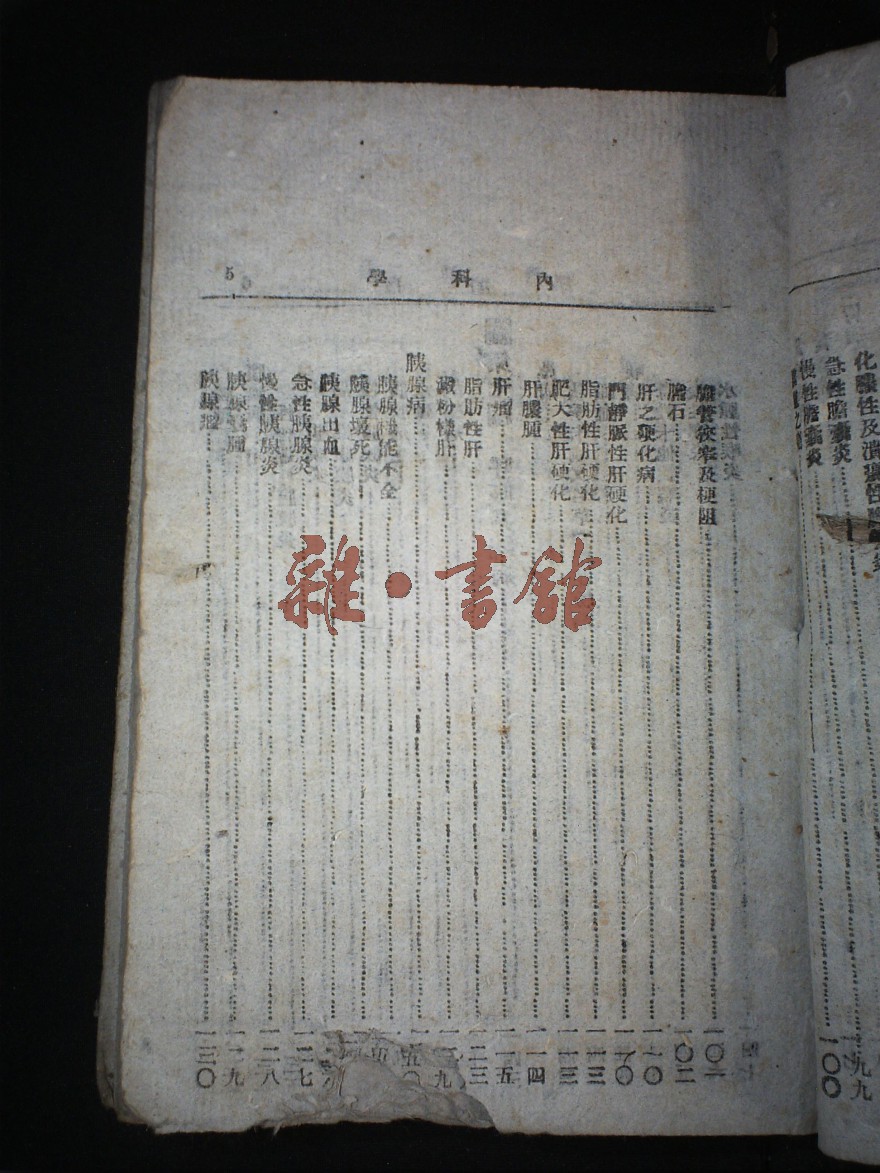 化膿性及潰瘍性
急性膽囊炎
九九
慢性膽囊炎
一〇〇
內科學
5
膽管狹窄及梗阻
膽石
一〇二
肝之硬化病
一一〇
門靜脈性肝硬化
脂肪性肝硬化
一一三
肥大性肝硬化
一一三
肝膿腫
一一四
肝瘤
一一五
脂肪性肝
一二三
澱粉樣肝
胰腺病
胰腺機能不全
胰腺壞死
胰腺出血
急性胰腺炎
一二七
慢性胰腺炎
一二八
胰腺囊腫
胰腺瘤
一三〇
雜·書館